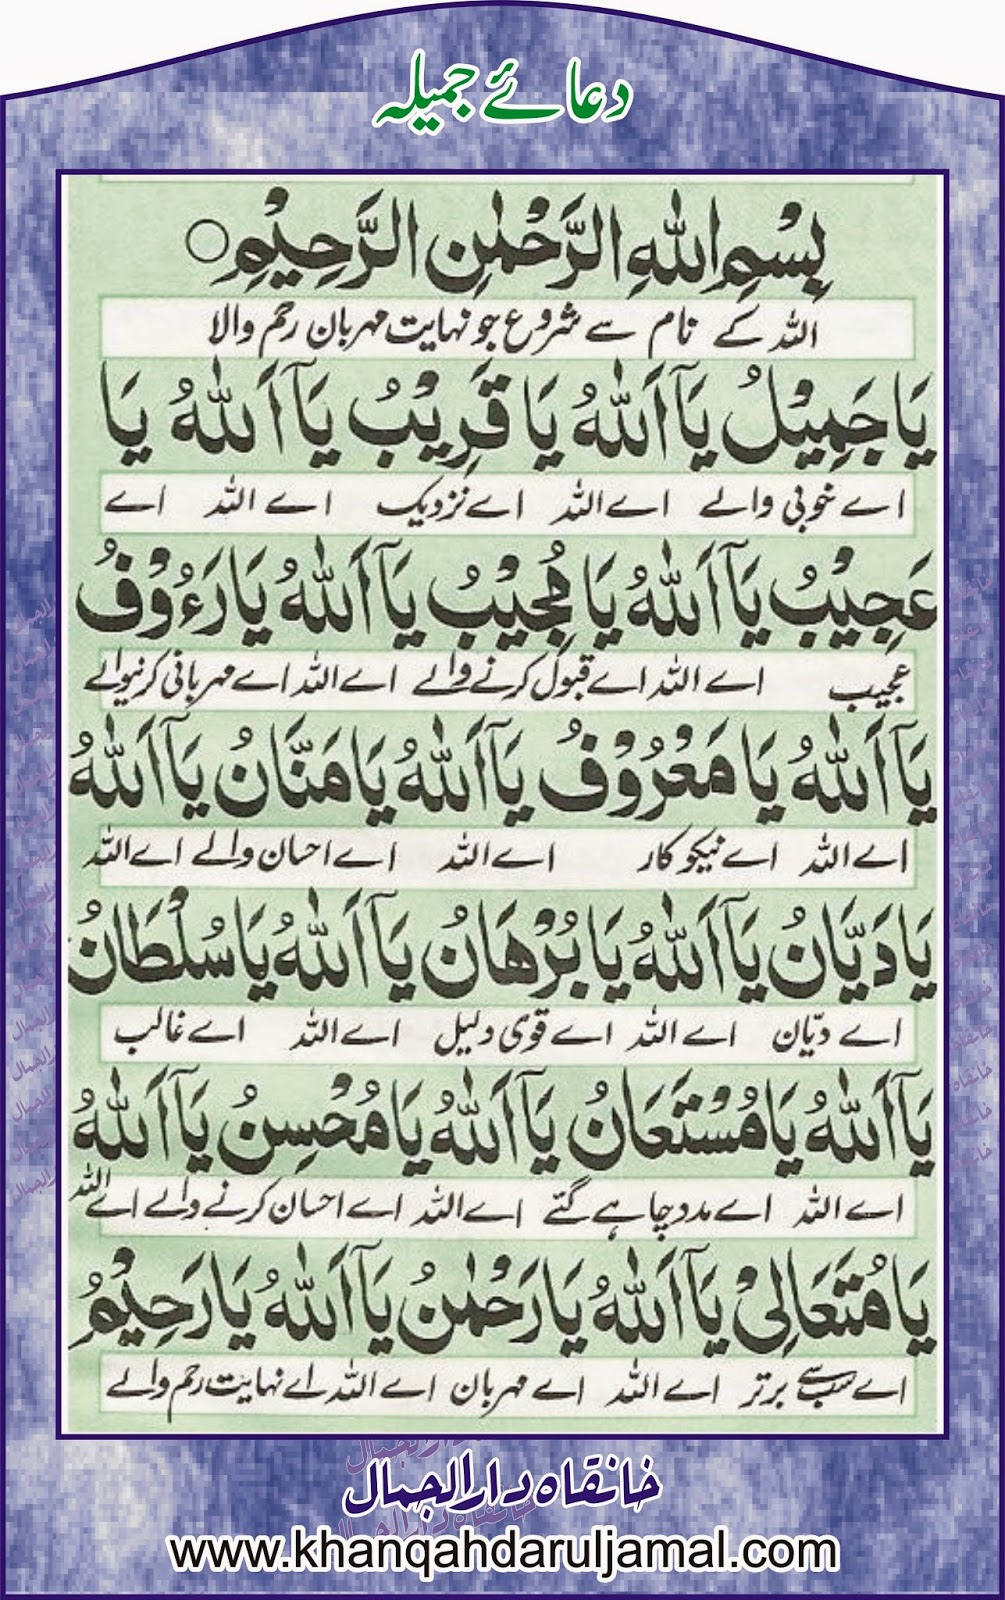 دعائے جمیلہ
بِسْمِ اللهِ الرَّحْمٰنِ الرَّحِيْمِ ○
اللہ کے نام سے شروع جو نہایت مہربان رحم والا
يَا جَمِيْلُ يَآ اَللهُ يَا قَرِيْبُ يَآ اَللهُ يَا
اے خوبی والے اے اللہ اے نزدیک اے اللہ اے
عَجِيْبُ يَآ اَللهُ يَا مُجِيْبُ يَآ اَللهُ يَا رَءُوْفُ
عجیب اے اللہ اے قبول کرنے والے اے اللہ اے مہربانی کرنیوالے
يَآ اَللهُ يَا مَعْرُوْفُ يَآ اَللهُ يَا مَنَّانُ يَآ اَللهُ
اے اللہ اے نیکو کار اے اللہ اے احسان والے اے اللہ
يَا دَيَّانُ يَآ اَللهُ يَا بُرْهَانُ يَآ اَللهُ يَا سُلْطَانُ
اے دیّان اے اللہ اے قوی دلیل اے اللہ اے غالب
يَآ اَللهُ يَا مُسْتَعَانُ يَآ اَللهُ يَا مُحْسِنُ يَآ اَللهُ
اے اللہ اے مدد چاہے گئے اے اللہ اے احسان کرنے والے اے اللہ
يَا مُتَعَالِيْ يَآ اَللهُ يَا رَحْمٰنُ يَآ اَللهُ يَا رَحِيْمُ
اے سب سے برتر اے اللہ اے مہربان اے اللہ اے نہایت رحم والے
خانقاہ دارالجمال
www.khanqahdaruljamal.com